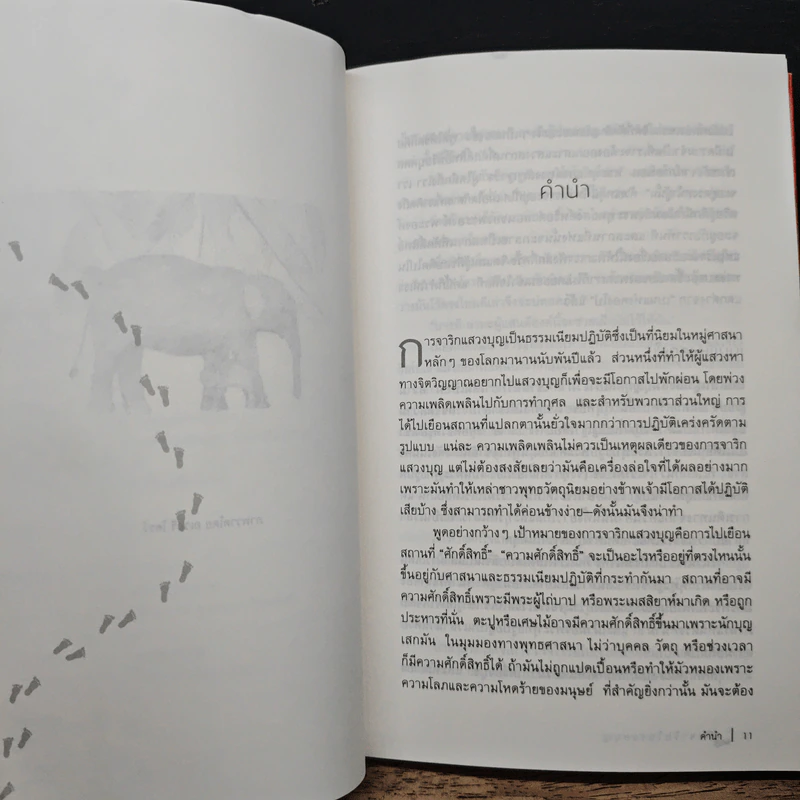 คำนำ
การจาริกแสวงบุญเป็นธรรมเนียมปฏิบัติซึ่งเป็นที่นิยมในหมู่ศาสนา
หลักๆ ของโลกมานานนับพันปีแล้ว ส่วนหนึ่งที่ทำให้ผู้แสวงหา
ทางจิตวิญญาณอยากไปแสวงบุญก็เพื่อจะมีโอกาสไปพักผ่อน โดยพ่วง
ความเพลิดเพลินไปกับการทำกุศล และสำหรับพวกเราส่วนใหญ่ การ
ได้ไปเยือนสถานที่แปลกตานั้นยั่วใจมากกว่าการปฏิบัติเคร่งครัดตาม
รูปแบบ แน่ละ ความเพลิดเพลินไม่ควรเป็นเหตุผลเดียวของการจาริก
แสวงบุญ แต่ไม่ต้องสงสัยเลยว่ามันคือเครื่องล่อใจที่ได้ผลอย่างมาก
เพราะมันทำให้เหล่าชาวพุทธวัตถุนิยมอย่างข้าพเจ้ามีโอกาสได้ปฏิบัติ
เสียบ้าง ซึ่งสามารถทำได้ค่อนข้างง่าย—ดังนั้นมันจึงน่าทำ
พูดอย่างกว้างๆ เป้าหมายของการจาริกแสวงบุญคือการไปเยือน
สถานที่ “ศักดิ์สิทธิ์” “ความศักดิ์สิทธิ์” จะเป็นอะไรหรืออยู่ที่ตรงไหนนั้น
ขึ้นอยู่กับศาสนาและธรรมเนียมปฏิบัติที่กระทำกันมา สถานที่อาจมี
ความศักดิ์สิทธิ์เพราะมีพระผู้ไถ่บาป หรือพระเมสสิยาห์มาเกิด หรือถูก
ประหารที่นั่น ตะปูหรือเศษไม้อาจมีความศักดิ์สิทธิ์ขึ้นมาเพราะนักบุญ
เสกมัน ในมุมมองทางพุทธศาสนา ไม่ว่าบุคคล วัตถุ หรือช่วงเวลา
ก็มีความศักดิ์สิทธิ์ได้ ถ้ามันไม่ถูกแปดเปื้อนหรือทำให้มัวหมองเพราะ
ความโลภและความโหดร้ายของมนุษย์ ที่สำคัญยิ่งกว่านั้น มันจะต้อง
คำนำ | 11